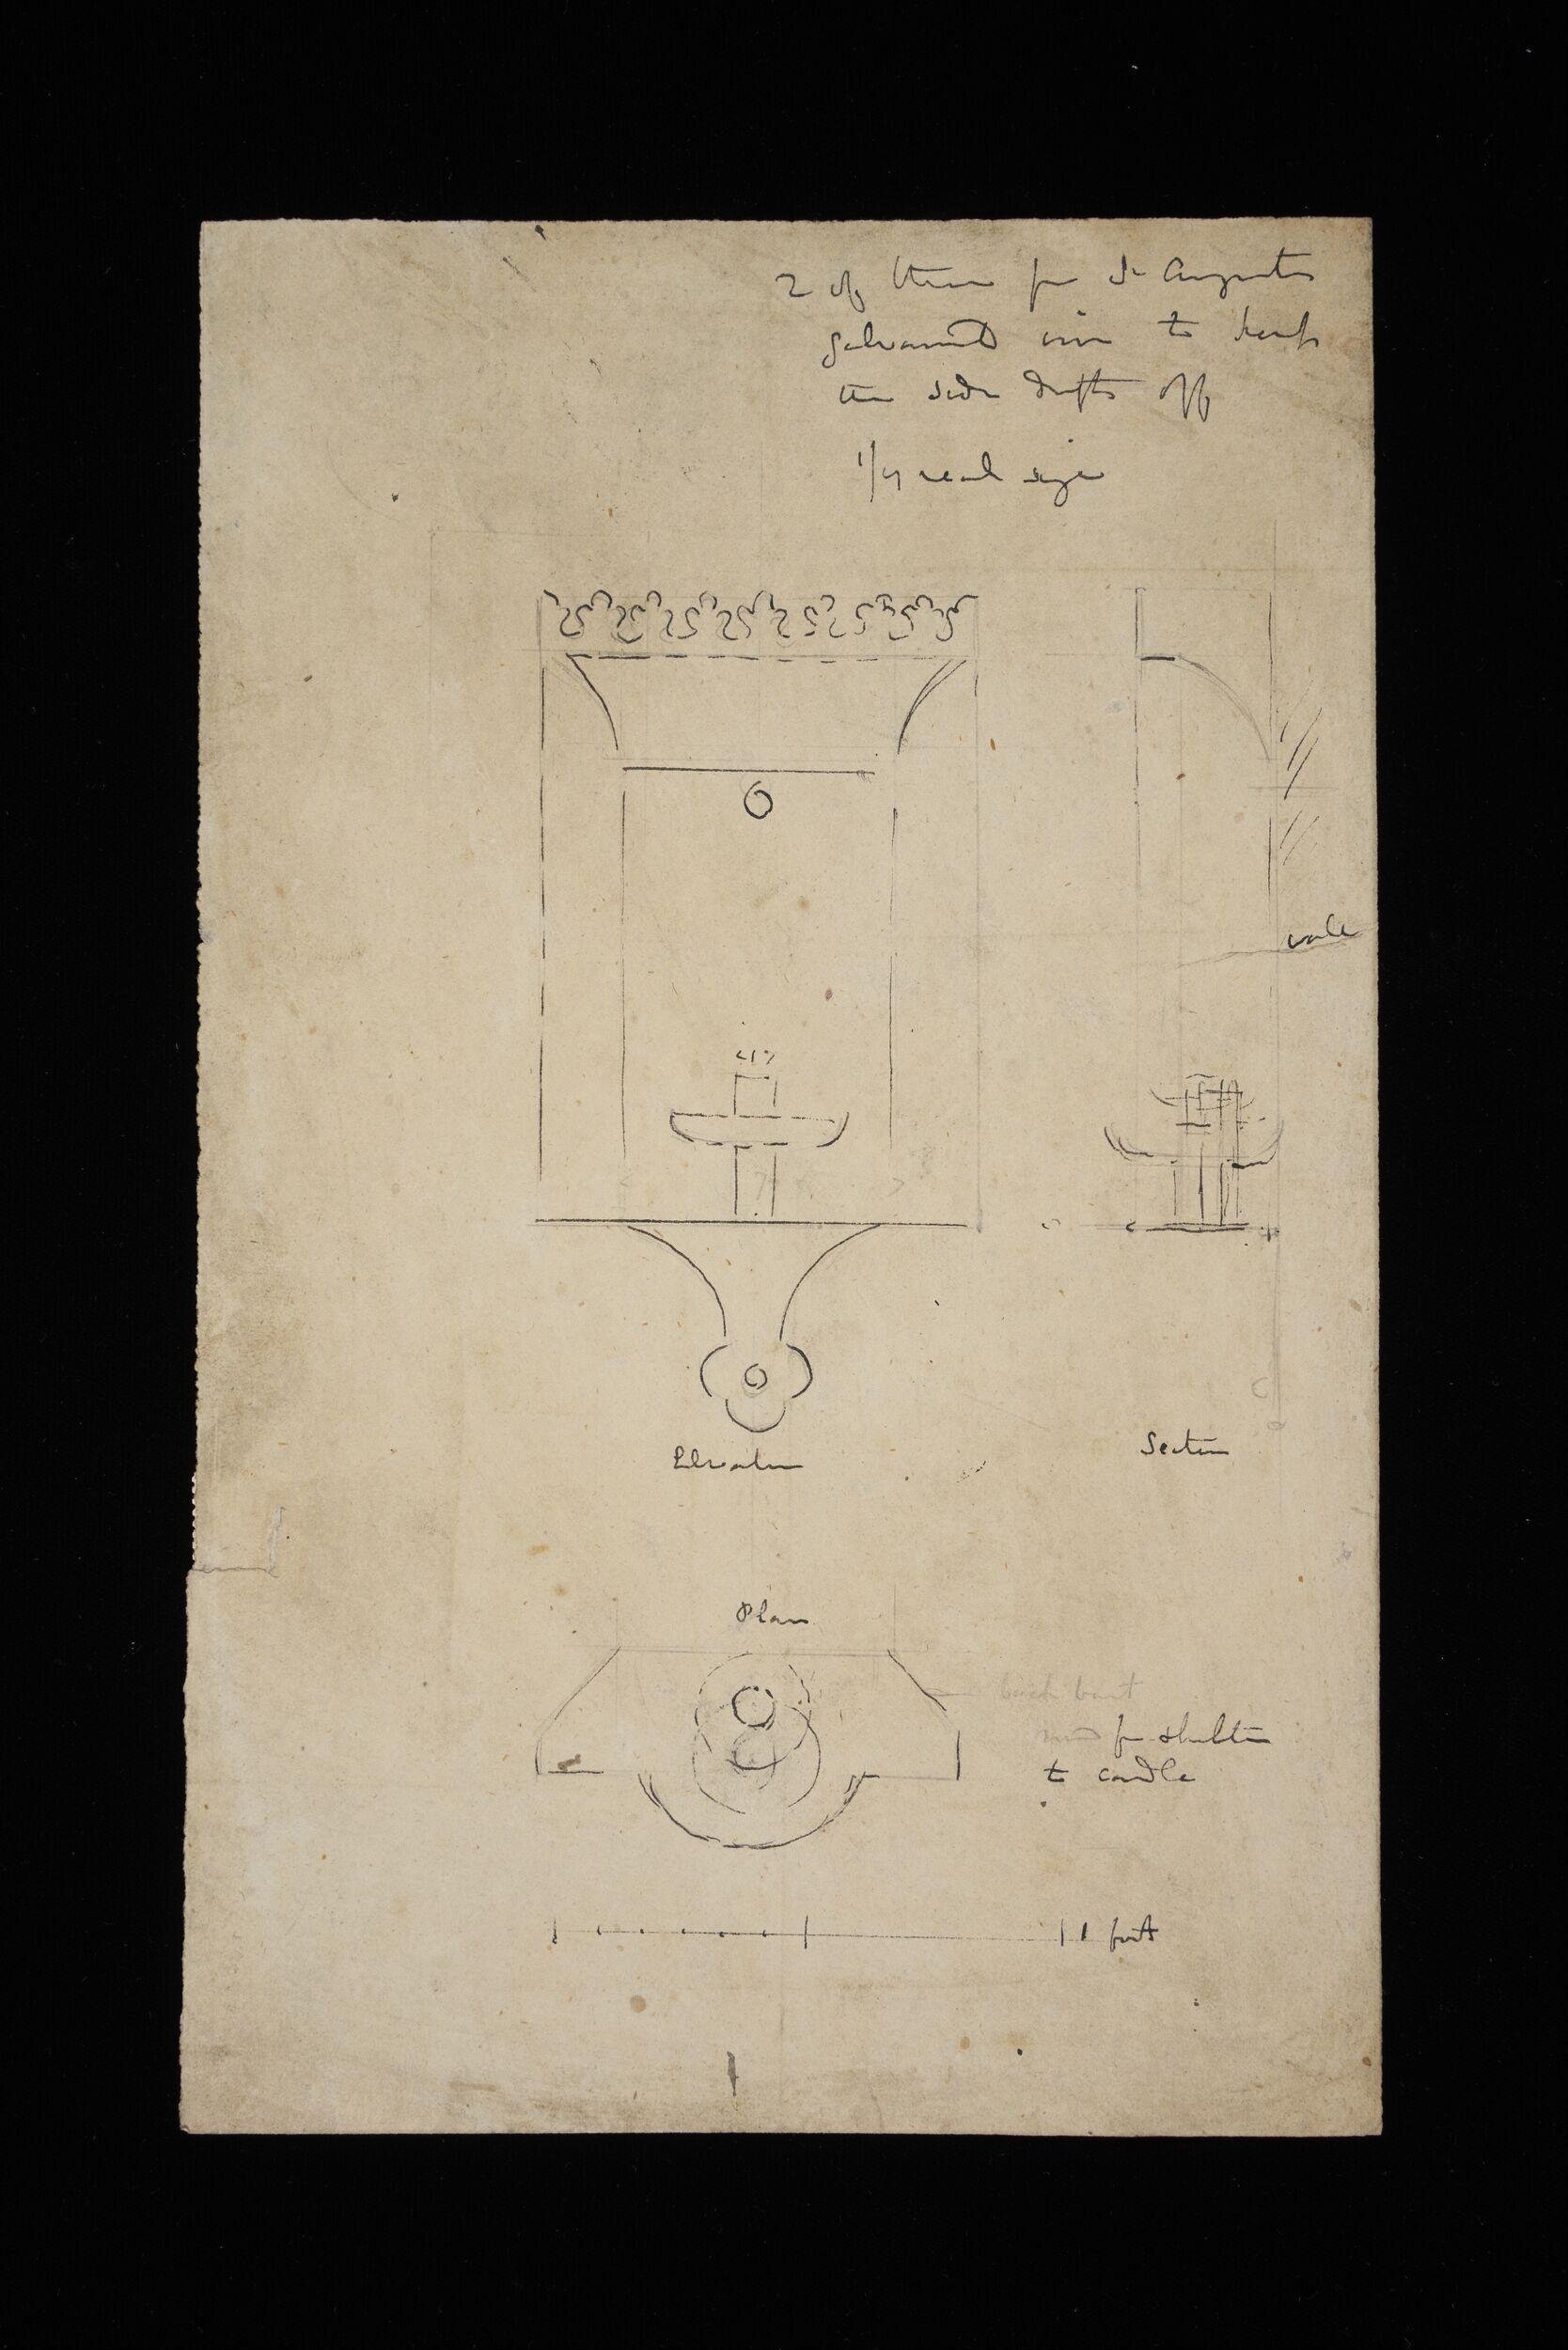 2 of these for St Augustins
galvanised iron to keep
the side drafts off
1/4 real size
wall
Elevation
Section
Plan
back bent
for shelter
to candle
1 foot